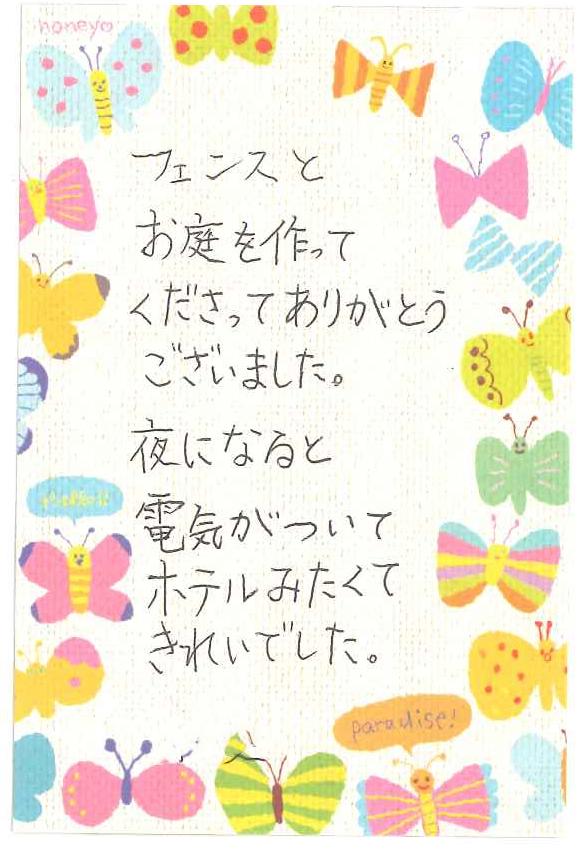 honey♡
フェンスと
お庭を作って
くださってありがとう
ございました。
夜になると
電気がついて
ホテルみたくて
きれいでした。
paradise!